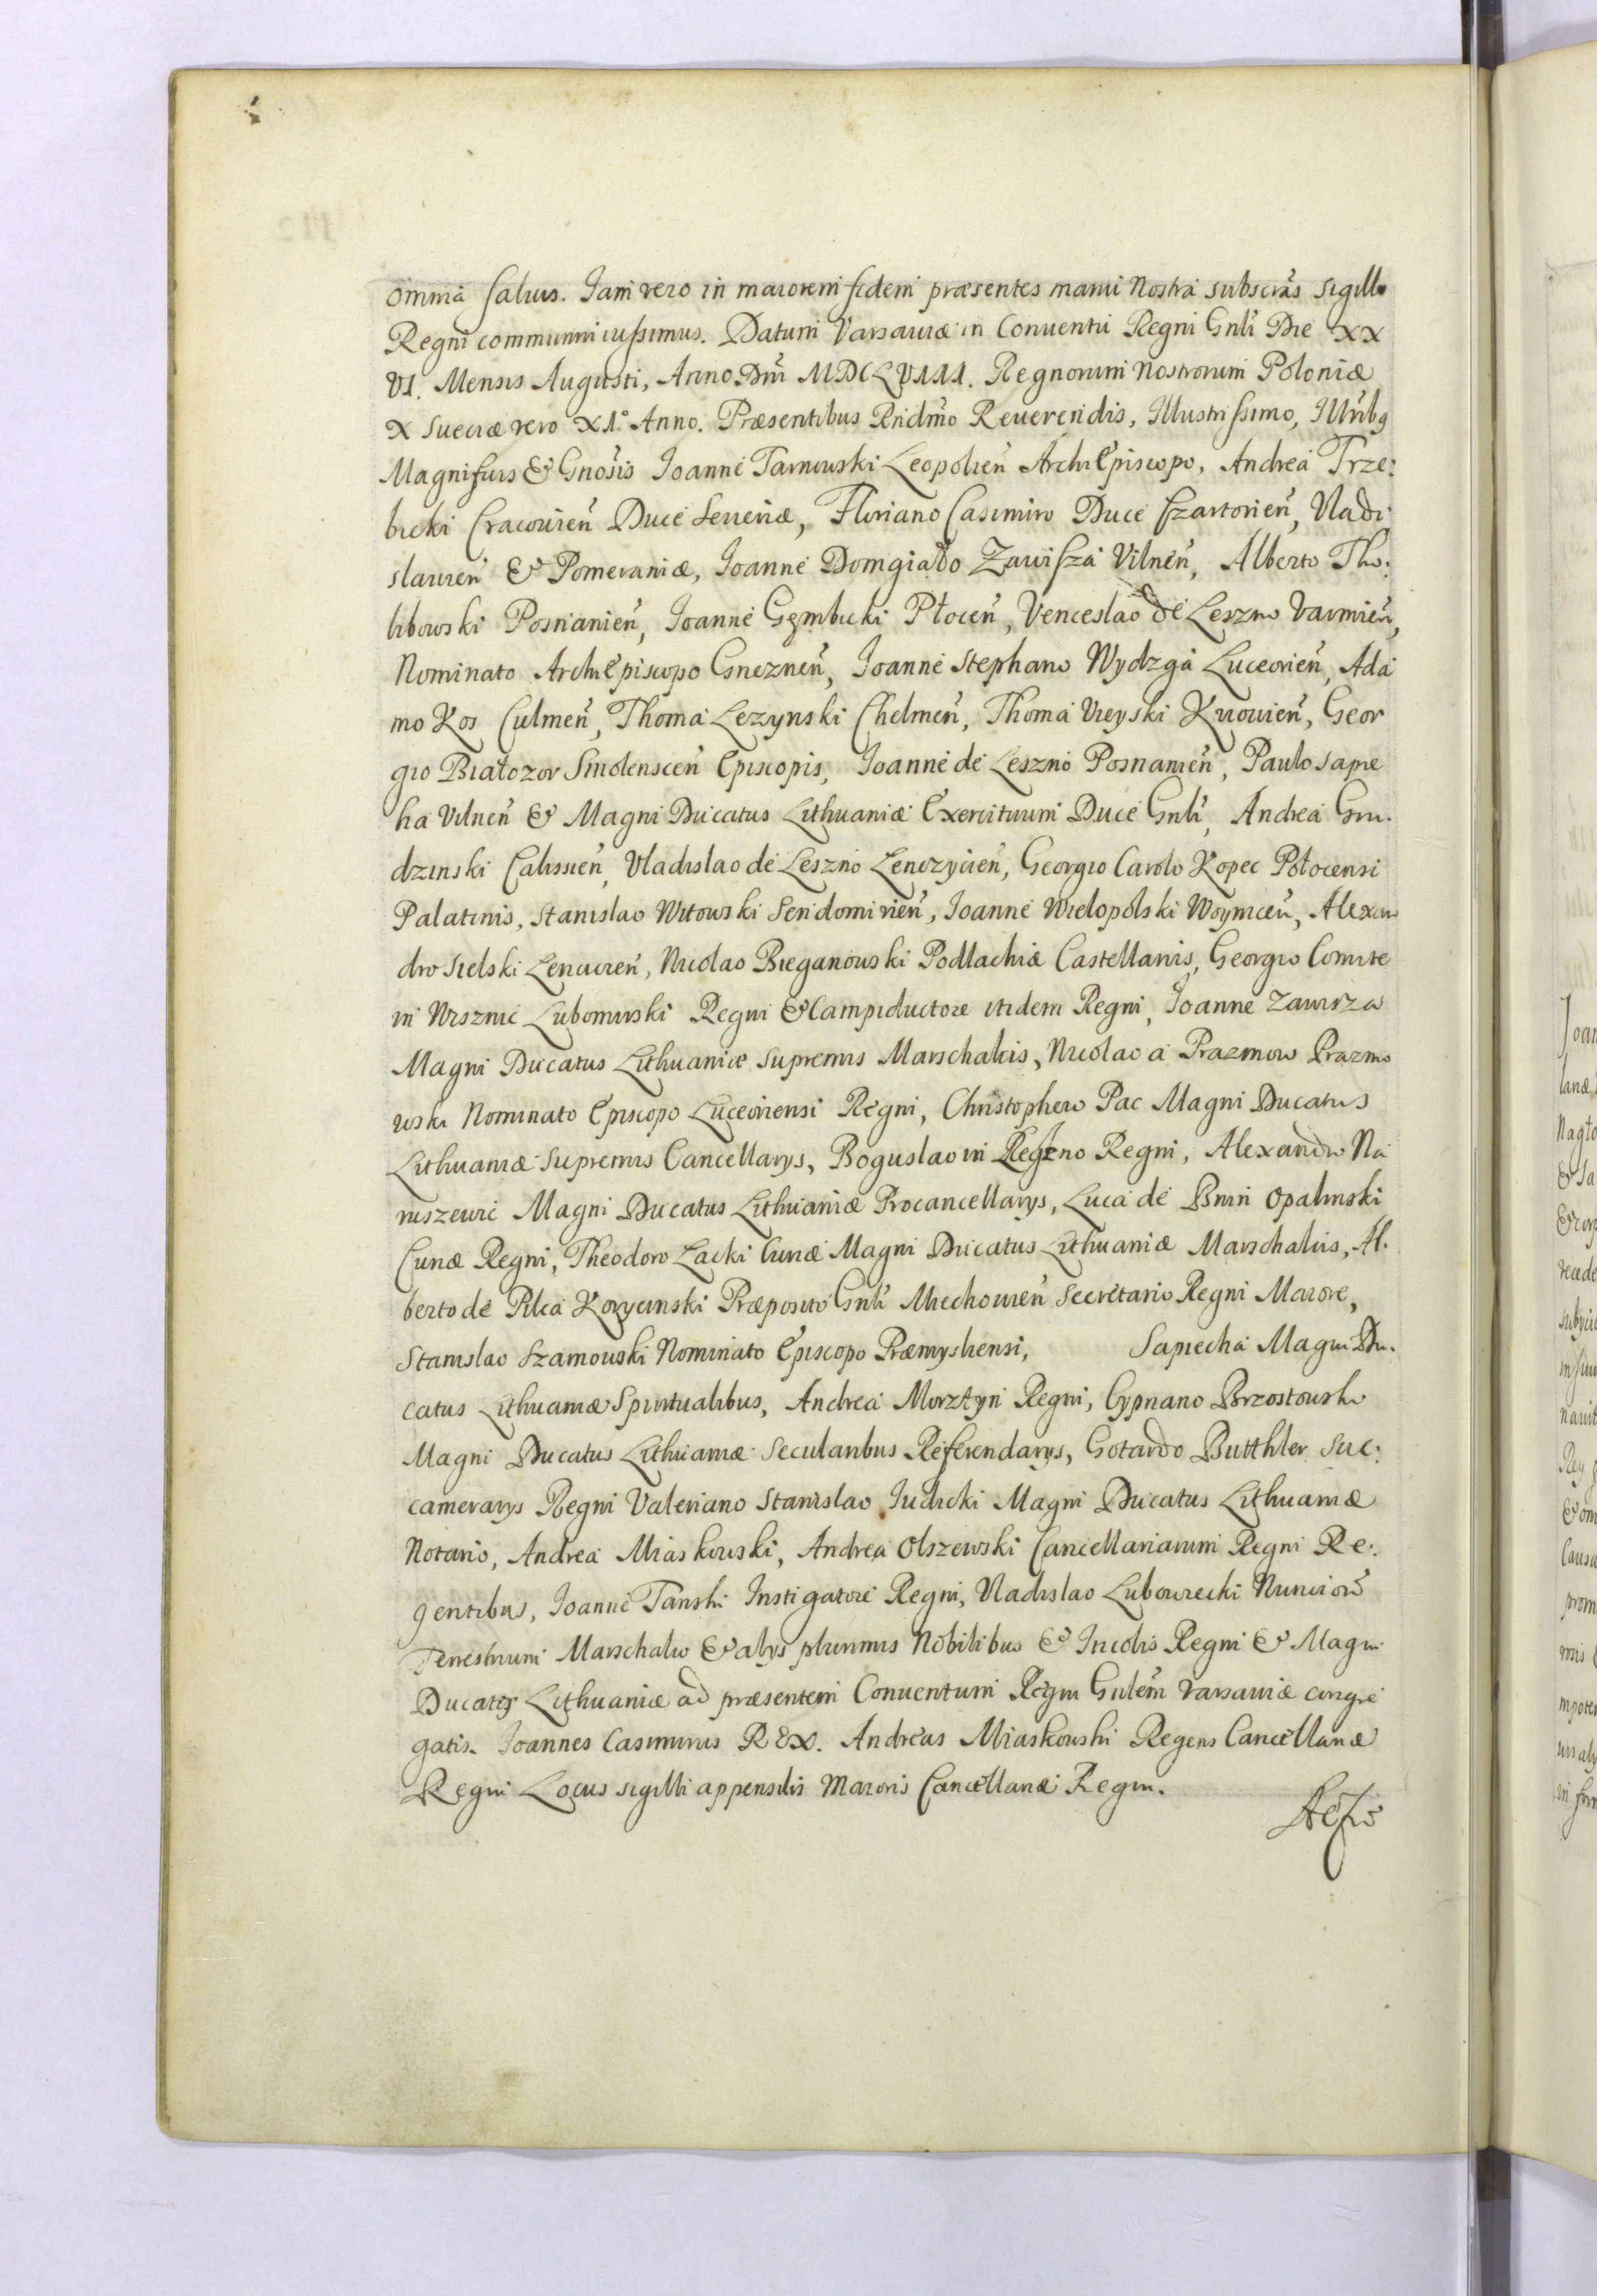 omnia salus. Iam vero in maiorem fidem præsentes manu Nostra subscr̃as sigillo
Regni communiri iussimus. Datum Varsaviæ in Conventu Regni Gnl̃i Die XX
VI. Mensis Augusti, Anno Dn̄i MDCLVIII. Regnorum Nostrorum Poloniæ
X Sueciæ vero XI.° Anno. Præsentibus Rndm̃o Reverendis, Illustrissimo, Illũbq
Magnificis & Gnõsis Ioanne Tarnowski Leopolień ArchiEpiscopo, Andrea Trze:
bicki Cracovień Duce Severiæ, Floriano Casimiro Duce Czartorień, Vladi
slavień & Pomeraniæ, Ioanne Domgiało Zawisza Vilneń, Alberto Tho:
libowski Posnanień, Ioanne Gęmbicki Płoceń, Venceslao de Leszno Varmień,
Nominato ArchiEpiscopo Gnezneń, Ioanne Stephano Wydzga Luceorień, Ada
mo Kos Culmeń, Thoma Lezynski Chelmeń, Thoma Vieyski Kijovień, Geor
gio Białozor Smolensceń Episcopis, Ioanne de Leszno Posnanień, Paulo Sapie
ha Vilneń & Magni Ducatus Lithuaniæ Exercituum Duce Gnl̃i, Andrea Gru.
dzinski Calissień, Vladislao de Leszno Lenczycień, Georgio Carolo Kopec Połocensi
Palatinis, Stanislao Witowski Sendomirień, Ioanne Wielopolski Woyniceń, Alexan
dro Sielski Lencicień, Nicolao Bieganowski Podlachiæ Castellanis, Georgio Comite
in Wisznic Lubomirski Regni & Campiductore itidem Regni, Ioanne Zawisza
Magni Ducatus Lithuaniæ Supremis Marschalcis, Nicolao a Prazmow Prazmo
wski Nominato Episcopo Luceoriensi Regni, Christophero Pac Magni Ducatus
Lithuaniæ Supremis Cancellarys, Boguslao in Regni, Alexandro Na
ruszewic Magni Ducatus Lithuaniæ Procancellarys, Luca de Bnin Opalinski
Curiæ Regni, Theodoro Lacki Curiæ Magni Ducatus Lithuaniæ Marschalcis, Al.
berto de Pilca Korycinski Præposito Gnl̃i Miechovień Secretario Regni Maiore,
Stanislao Szarnowski Nominato Episcopo Præmysliensi, Sapiecha Magni Du.
catus Lithuaniæ Spiritualibus, Andrea Morztyn Regni, Cypriano Brzostowski
Magni Ducatus Lithuaniæ Secularibus Referendarys, Gotardo Butthler Suc:
camerarys Regni Valeriano Stanislao Iudicki Magni Ducatus Lithuaniæ
Notario, Andrea Miaskowski, Andrea Olszewski Cancellariarum Regni Re:
gentibus, Ioanne Tanski Instigatore Regni, Vladislao Lubowiecki Nuncior̃
Terrestrium Marschalco & alys plurimis Nobilibus & Incolis Regni & Magni
Ducatus Lithuaniæ ad præsentem Conventum Regni Gnlẽm Varsaviæ congre
gatis. Ioannes Casimirus REX. Andreas Miaskowski Regens Cancellariæ
Regni Locus sigilli appensilis Maioris Cancellariæ Regni.